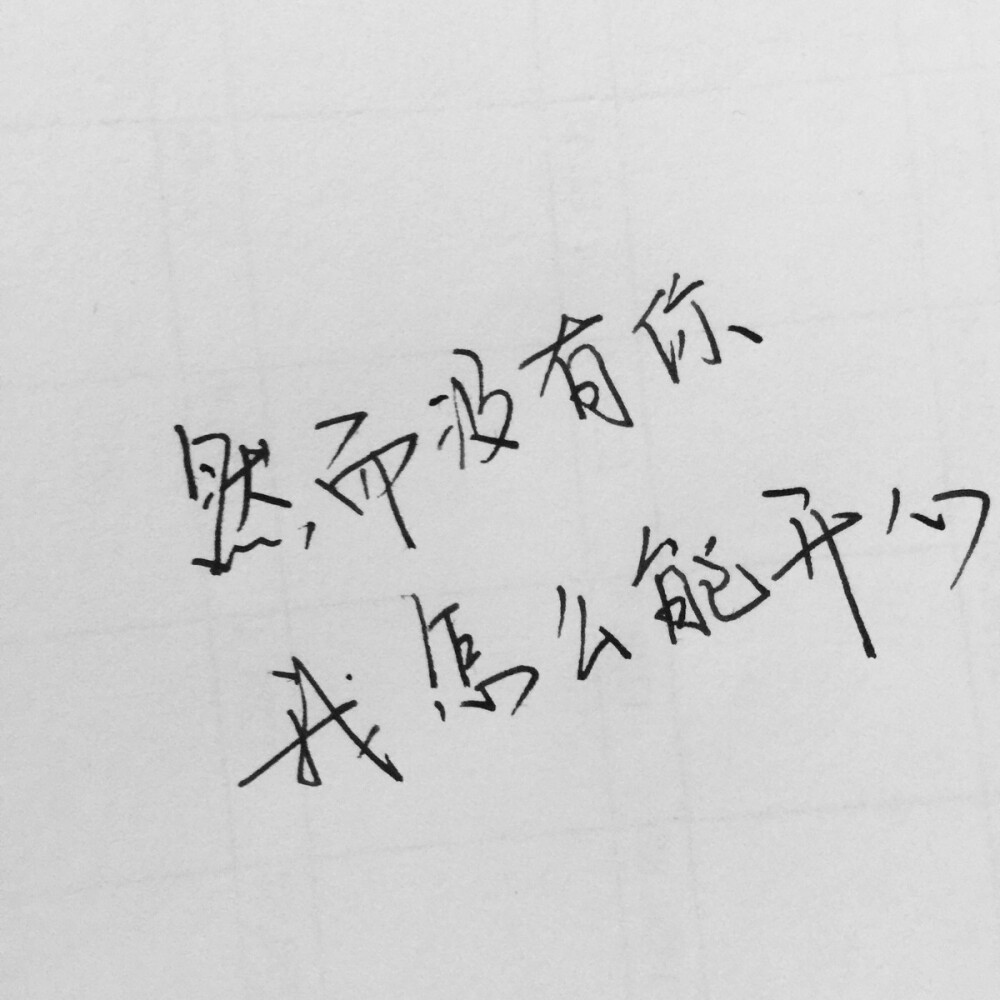 然而没有你
我怎么能开心